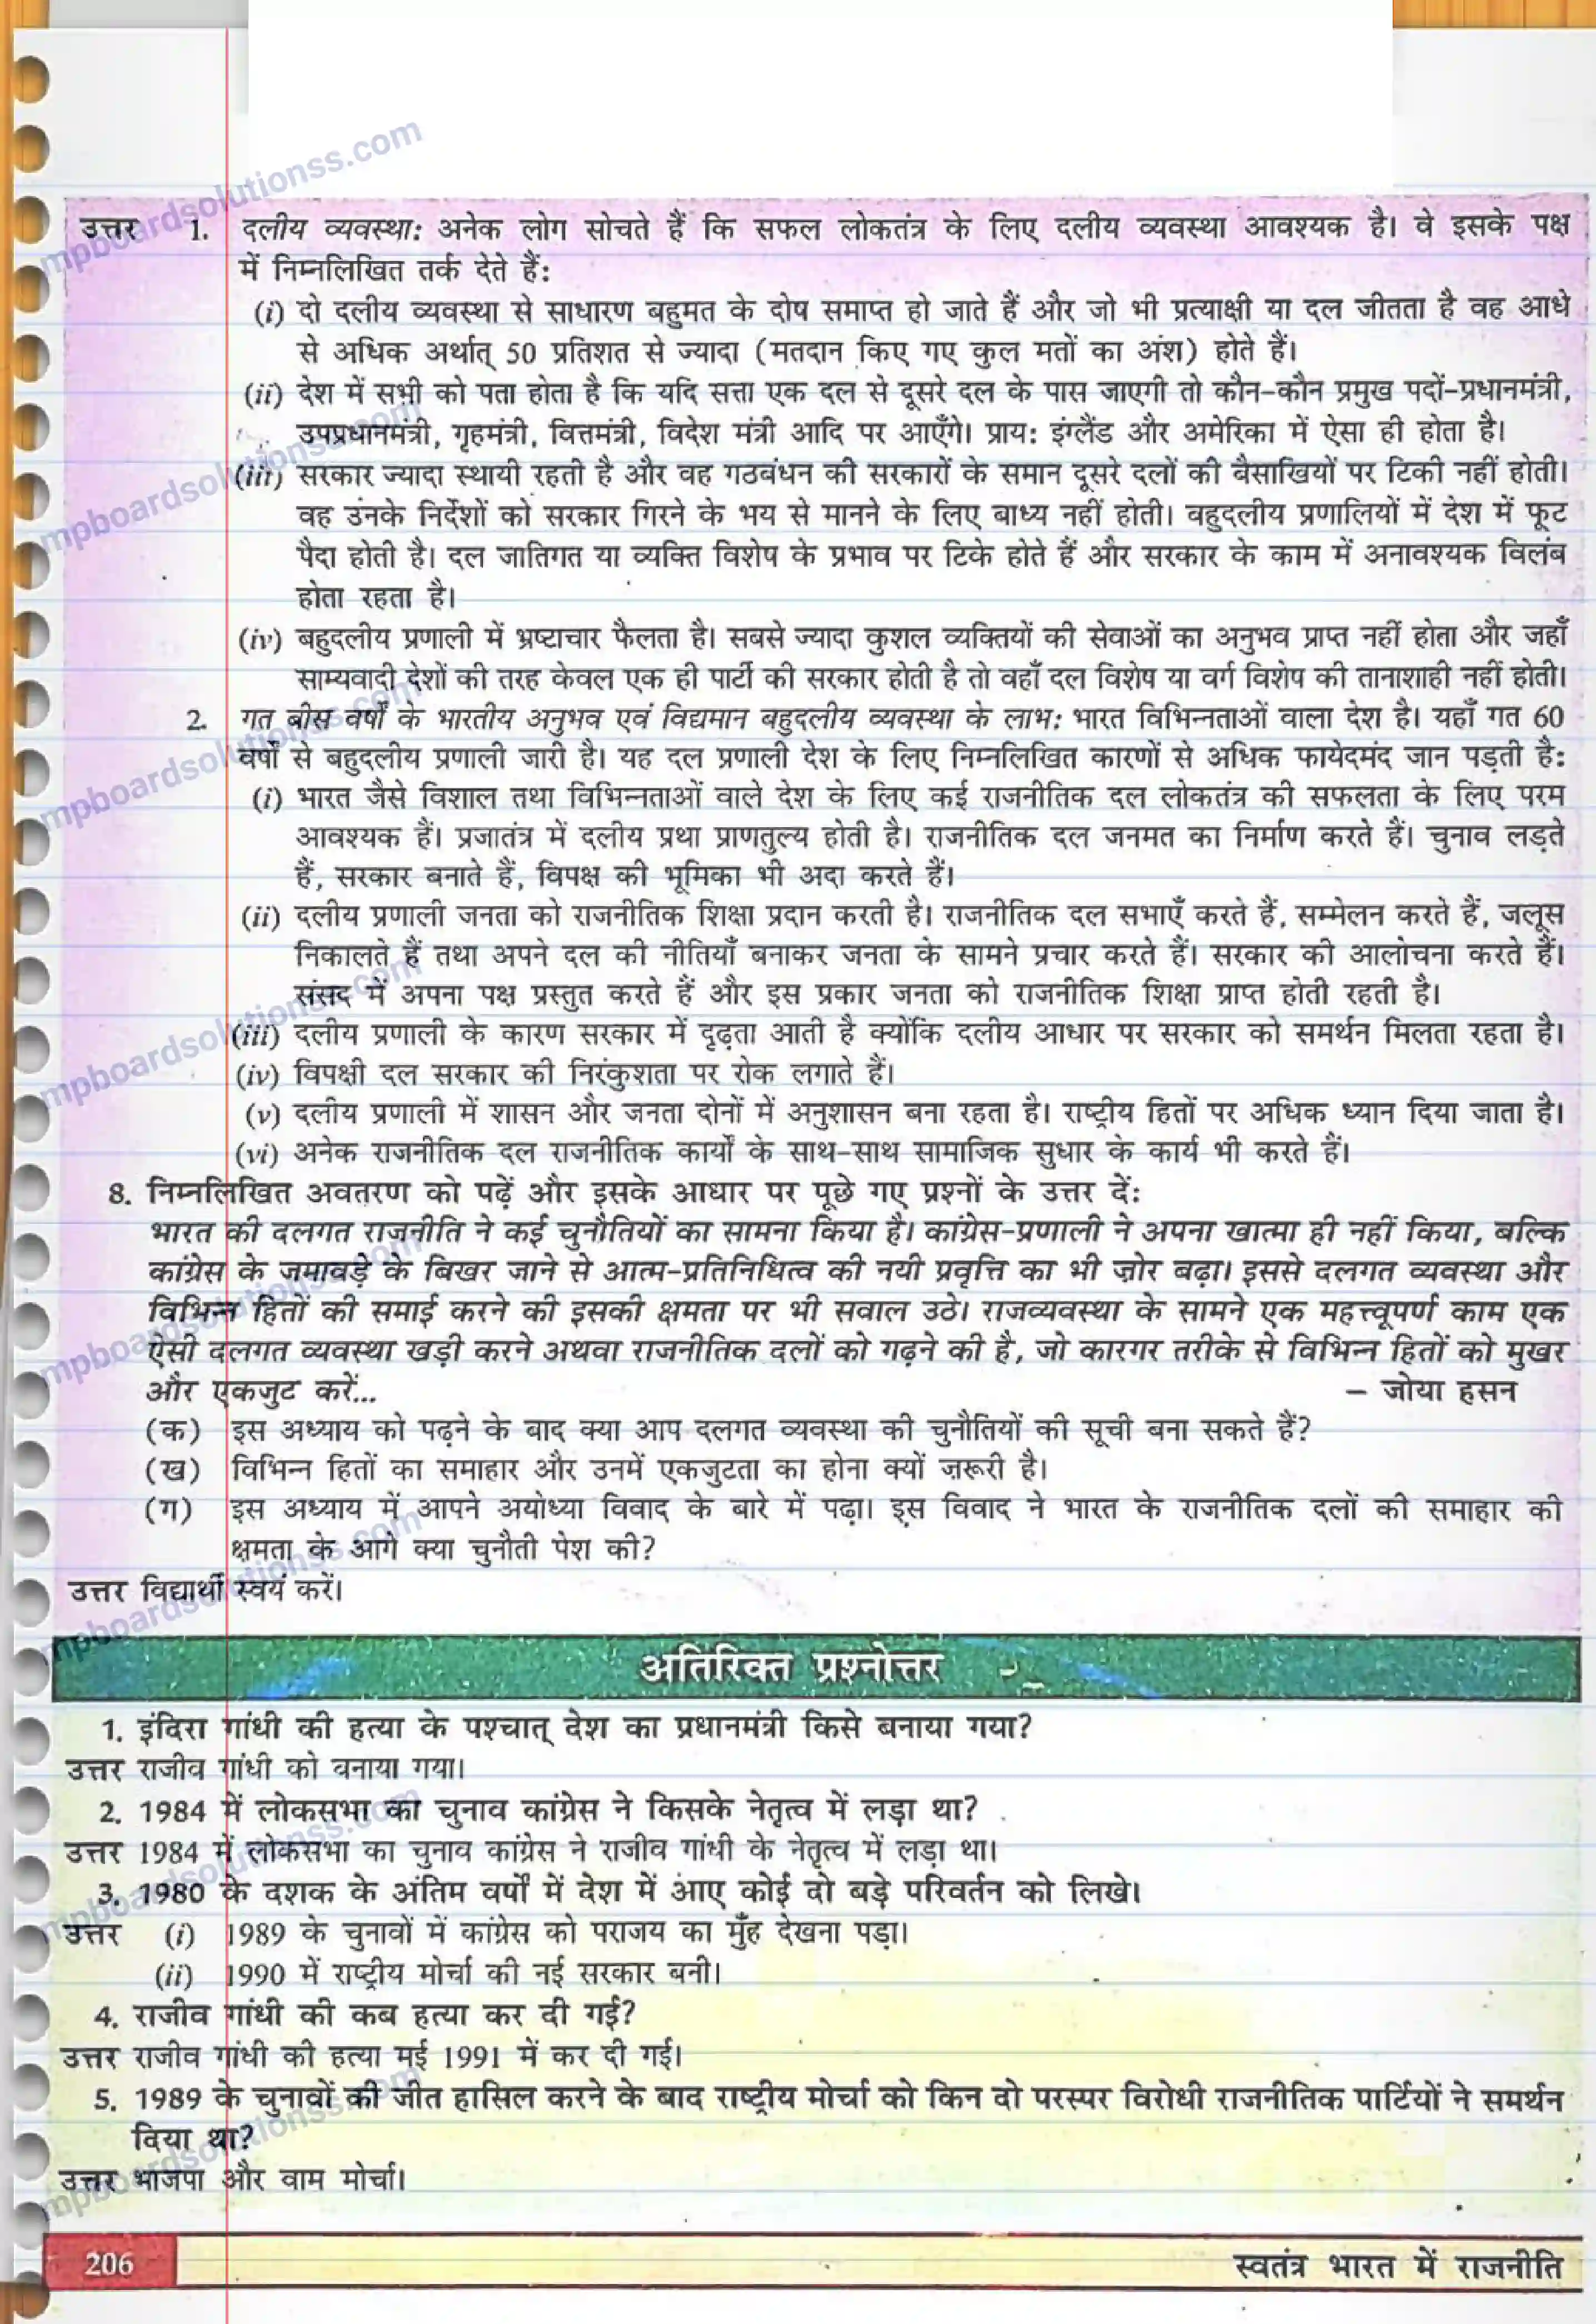 उत्तर 1. दलीय व्यवस्था: अनेक लोग सोचते हैं कि सफल लोकतंत्र के लिए दलीय व्यवस्था आवश्यक है। वे इसके पक्ष
में निम्नलिखित तर्क देते हैं:
(i) दो दलीय व्यवस्था से साधारण बहुमत के दोष समाप्त हो जाते हैं और जो भी प्रत्याक्षी या दल जीतता है वह आधे
से अधिक अर्थात् 50 प्रतिशत से ज्यादा (मतदान किए गए कुल मतों का अंश) होते हैं।
(ii) देश में सभी को पता होता है कि यदि सत्ता एक दल से दूसरे दल के पास जाएगी तो कौन-कौन प्रमुख पदों-प्रधानमंत्री,
उपप्रधानमंत्री, गृहमंत्री, वित्तमंत्री, विदेश मंत्री आदि पर आएँगे। प्राय: इंग्लैंड और अमेरिका में ऐसा ही होता है।
(iii) सरकार ज्यादा स्थायी रहती है और वह गठबंधन की सरकारों के समान दूसरे दलों की बैसाखियों पर टिकी नहीं होती।
वह उनके निर्देशों को सरकार गिरने के भय से मानने के लिए बाध्य नहीं होती। बहुदलीय प्रणालियों में देश में फूट
पैदा होती है। दल जातिगत या व्यक्ति विशेष के प्रभाव पर टिके होते हैं और सरकार के काम में अनावश्यक विलंब
होता रहता है।
(iv) बहुदलीय प्रणाली में भ्रष्टाचार फैलता है। सबसे ज्यादा कुशल व्यक्तियों की सेवाओं का अनुभव प्राप्त नहीं होता और जहाँ
साम्यवादी देशों की तरह केवल एक ही पार्टी की सरकार होती है तो वहाँ दल विशेष या वर्ग विशेष की तानाशाही नहीं होती।
2. गत बीस वर्षों के भारतीय अनुभव एवं विद्यमान बहुदलीय व्यवस्था के लाभ: भारत विभिन्नताओं वाला देश है। यहाँ गत 60
वर्षों से बहुदलीय प्रणाली जारी है। यह दल प्रणाली देश के लिए निम्नलिखित कारणों से अधिक फायेदमंद जान पड़ती है:
(i) भारत जैसे विशाल तथा विभिन्नताओं वाले देश के लिए कई राजनीतिक दल लोकतंत्र की सफलता के लिए परम
आवश्यक हैं। प्रजातंत्र में दलीय प्रथा प्राणतुल्य होती है। राजनीतिक दल जनमत का निर्माण करते हैं। चुनाव लड़ते
हैं, सरकार बनाते हैं, विपक्ष की भूमिका भी अदा करते हैं।
(ii) दलीय प्रणाली जनता को राजनीतिक शिक्षा प्रदान करती है। राजनीतिक दल सभाएँ करते हैं, सम्मेलन करते हैं, जलूस
निकालते हैं तथा अपने दल की नीतियाँ बनाकर जनता के सामने प्रचार करते हैं। सरकार की आलोचना करते हैं।
संसद में अपना पक्ष प्रस्तुत करते हैं और इस प्रकार जनता को राजनीतिक शिक्षा प्राप्त होती रहती है।
(iii) दलीय प्रणाली के कारण सरकार में दृढ़ता आती है क्योंकि दलीय आधार पर सरकार को समर्थन मिलता रहता है।
(iv) विपक्षी दल सरकार की निरंकुशता पर रोक लगाते हैं।
(v) दलीय प्रणाली में शासन और जनता दोनों में अनुशासन बना रहता है। राष्ट्रीय हितों पर अधिक ध्यान दिया जाता है।
(vi) अनेक राजनीतिक दल राजनीतिक कार्यों के साथ-साथ सामाजिक सुधार के कार्य भी करते हैं।
8. निम्नलिखित अवतरण को पढ़ें और इसके आधार पर पूछे गए प्रश्नों के उत्तर दें:
भारत की दलगत राजनीति ने कई चुनौतियों का सामना किया है। कांग्रेस-प्रणाली ने अपना खात्मा ही नहीं किया, बल्कि
कांग्रेस के जमावड़े के बिखर जाने से आत्म-प्रतिनिधित्व की नयी प्रवृत्ति का भी ज़ोर बढ़ा। इससे दलगत व्यवस्था और
विभिन्न हितों की समाई करने की इसकी क्षमता पर भी सवाल उठे। राजव्यवस्था के सामने एक महत्त्वपूर्ण काम एक
ऐसी दलगत व्यवस्था खड़ी करने अथवा राजनीतिक दलों को गढ़ने की है, जो कारगर तरीके से विभिन्न हितों को मुखर
और एकजुट करें...
– जोया हसन
(क) इस अध्याय को पढ़ने के बाद क्या आप दलगत व्यवस्था की चुनौतियों की सूची बना सकते हैं?
(ख) विभिन्न हितों का समाहार और उनमें एकजुटता का होना क्यों ज़रूरी है।
(ग) इस अध्याय में आपने अयोध्या विवाद के बारे में पढ़ा। इस विवाद ने भारत के राजनीतिक दलों की समाहार की
क्षमता के आगे क्या चुनौती पेश की?
उत्तर विद्यार्थी स्वयं करें।
अतिरिक्त प्रश्नोत्तर
1. इंदिरा गांधी की हत्या के पश्चात् देश का प्रधानमंत्री किसे बनाया गया?
उत्तर राजीव गांधी को बनाया गया।
2. 1984 में लोकसभा का चुनाव कांग्रेस ने किसके नेतृत्व में लड़ा था?
उत्तर 1984 में लोकसभा का चुनाव कांग्रेस ने राजीव गांधी के नेतृत्व में लड़ा था।
3. 1980 के दशक के अंतिम वर्षों में देश में आए कोई दो बड़े परिवर्तन को लिखे।
उत्तर (i) 1989 के चुनावों में कांग्रेस को पराजय का मुँह देखना पड़ा।
(ii) 1990 में राष्ट्रीय मोर्चा की नई सरकार बनी।
4. राजीव गांधी की कब हत्या कर दी गई?
उत्तर राजीव गांधी की हत्या मई 1991 में कर दी गई।
5. 1989 के चुनावों की जीत हासिल करने के बाद राष्ट्रीय मोर्चा को किन दो परस्पर विरोधी राजनीतिक पार्टियों ने समर्थन
दिया था?
उत्तर भाजपा और वाम मोर्चा।
206
स्वतंत्र भारत में राजनीति
mpboardsolutionss.com
mpboardsolutionss.com
mpboardsolutionss.com
mpboardsolutionss.com
mpboardsolutionss.com
mpboardsolutionss.com
mpboardsolutionss.com
mpboardsolutionss.com